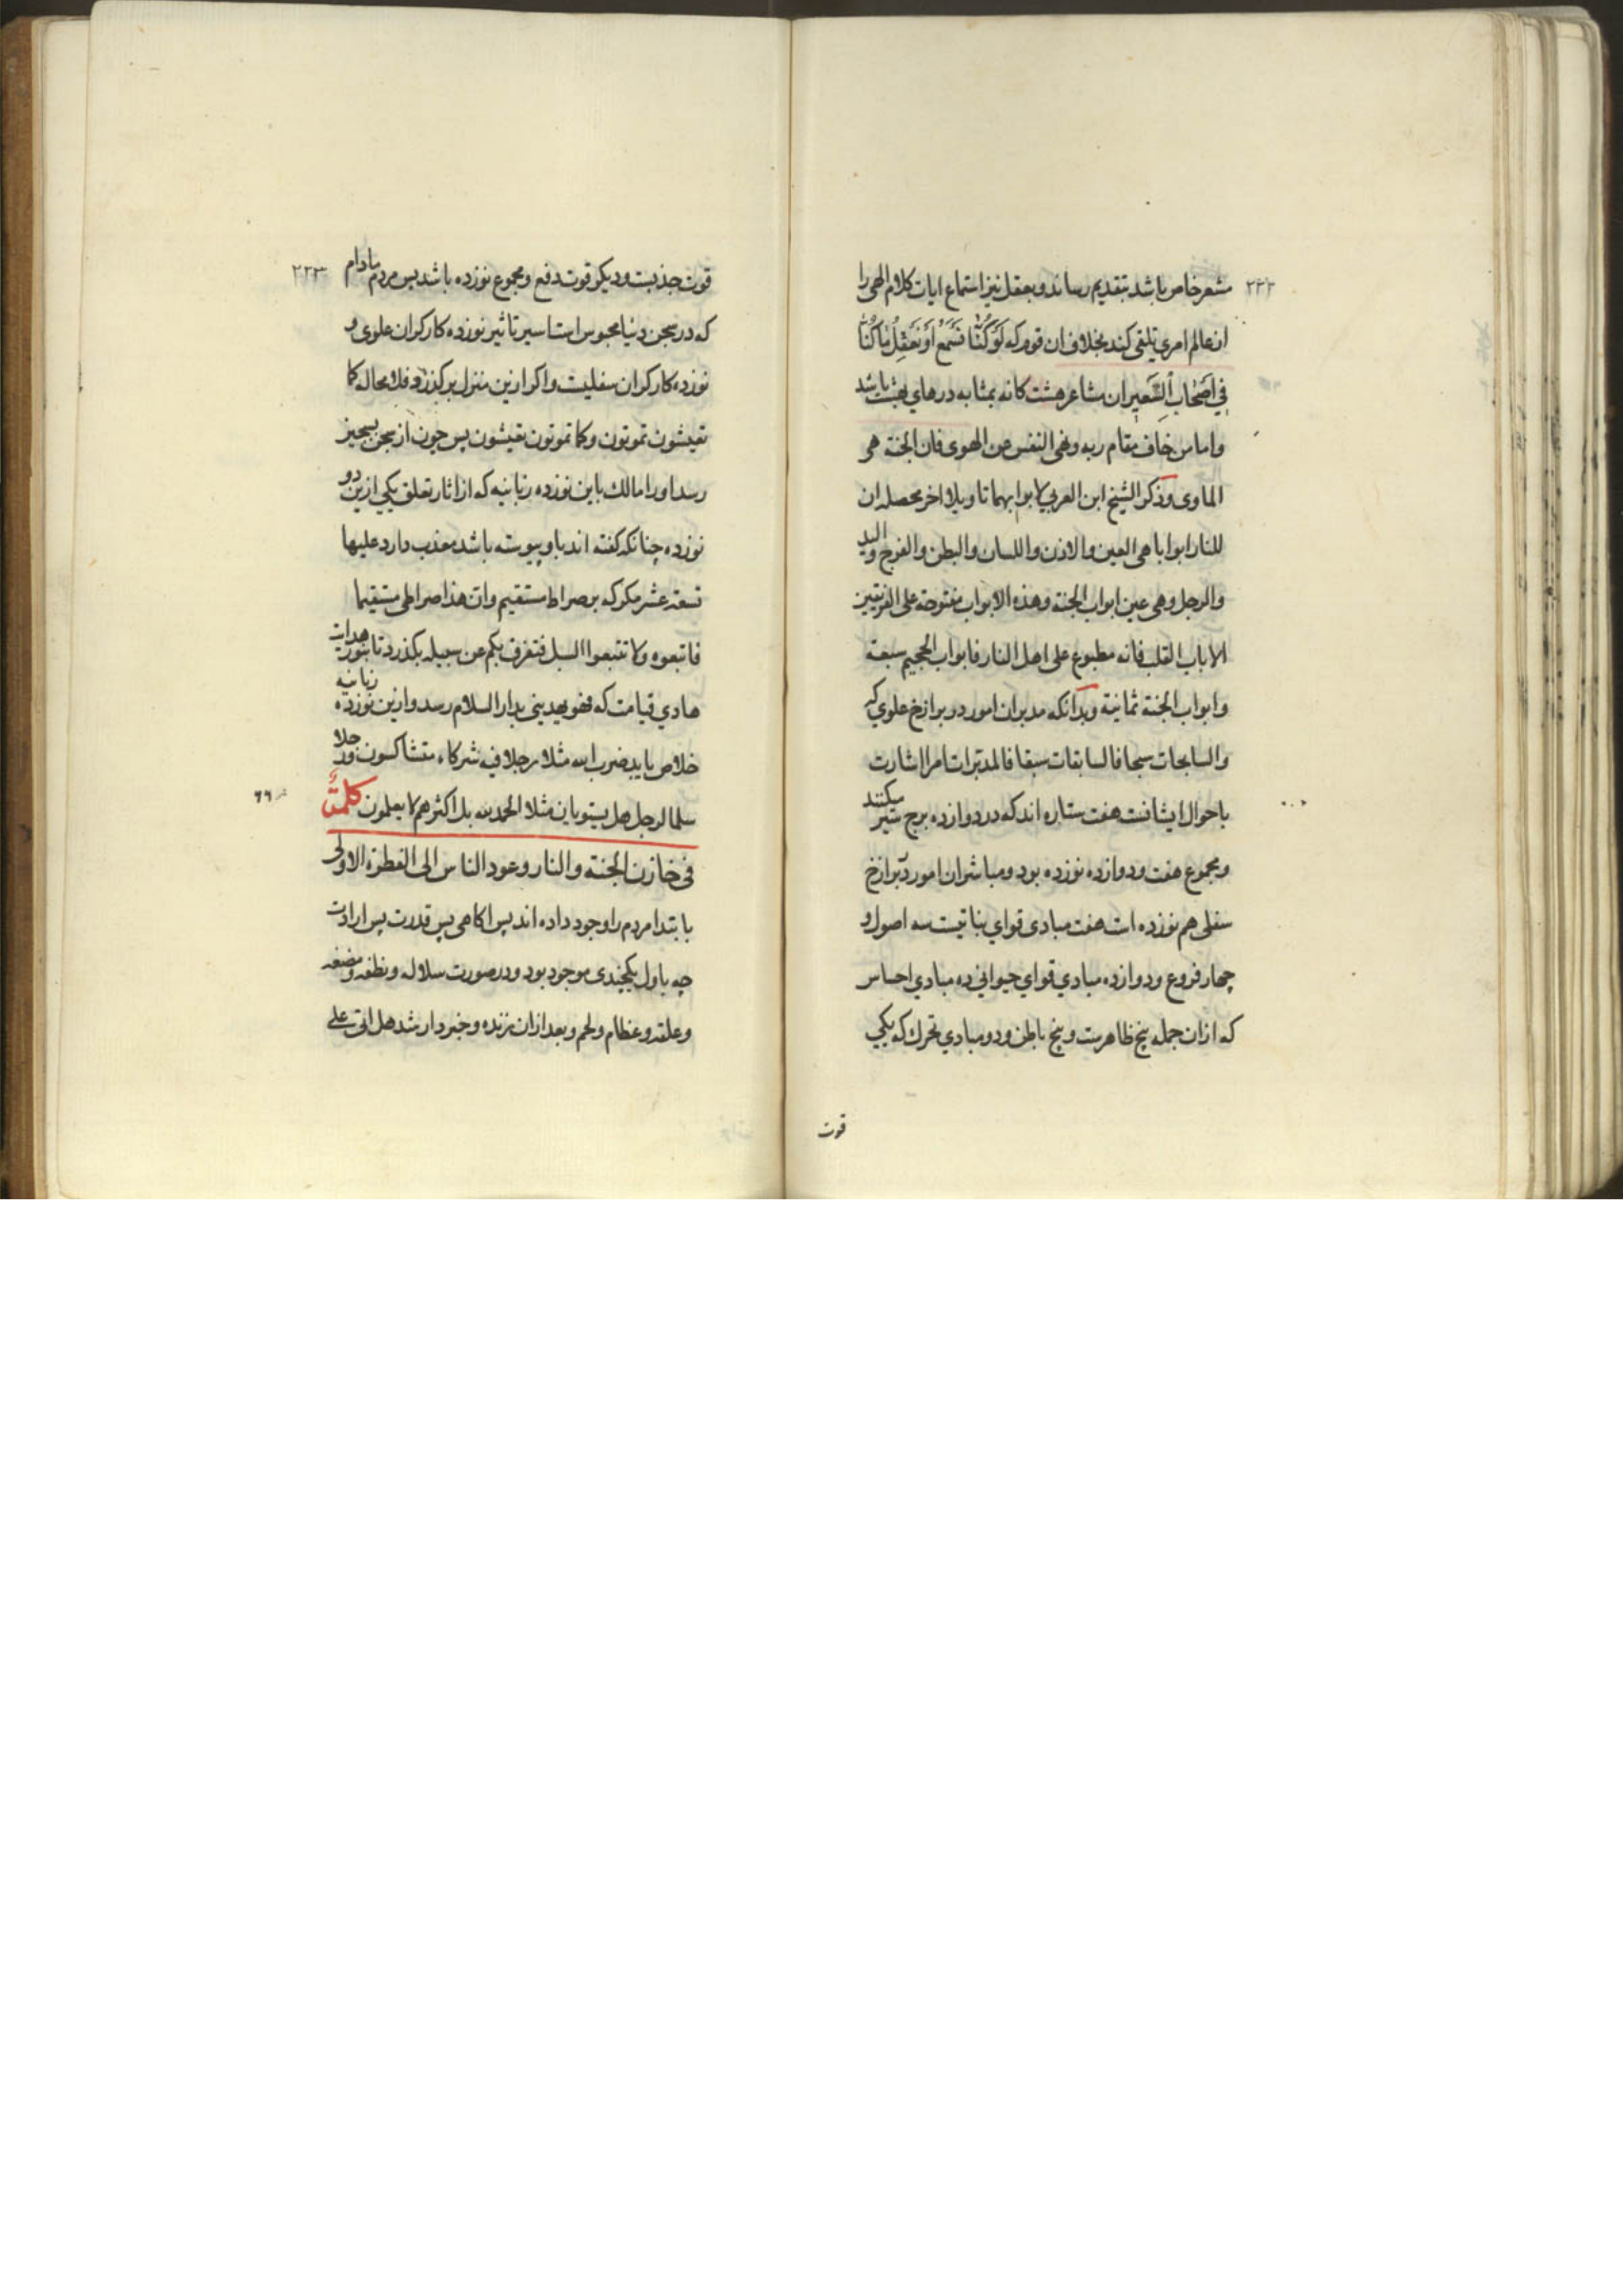 ٢٢٢
مشعر خاص باشد بتقدیم رساند و بعقل نیز استماع ایات کلام الهی را
از عالم امری تلقی کند بخلاف ان قوم که لَوْ كُنَّا نَسْمَعُ أَوْ نَعْقِلُ مَا كُنَّا
فِي أَصْحَابِ السَّعِيرِ ان مشاعر هشت کانه بمثابه درهای بهشت باشد
واما من خاف مقام ربه ونهی النفس عن الهوی فان الجنة هی
الماوی وذکر الشیخ ابن العربی لابوابهما تاویلا اخر محصله ان
للنار ابوابا هی العین والاذن واللسان والبطن والفرج والید
والرجل وهی عین ابواب الجنة وهذه الابواب مفتوحة علی الفریقین
الا باب القلب فانه مطبوع علی اهل النار فابواب الجحیم سبعة
وابواب الجنة ثمانیة وبدانکه مدبران امور در برازخ علوی که
والسابحات سبحا فالسابقات سبقا فالمدبرات امرا اشارت
باحوال ایشانست هفت ستاره اند که در دوازده برج سیر میکنند
ومجموع هفت ودوازده نوزده بود ومباشران امور در برازخ
سفلی هم نوزده است هفت مبادی قوای نباتیست سه اصول و
چهار فروع ودوازده مبادی قوای حیوانی ده مبادی احساس
که ازان جمله پنج ظاهرست وپنج باطن ودو مبادی تحرك که یکی
قوت
٢٢٣
قوت جذبست ودیکر قوت دفع ومجموع نوزده باشد پس مردم مادام
که در سجن دنیا محبوس است اسیر تاثیر نوزده کارکران علوی و
نوزده کارکران سفلیست واکر ازین منزل برنکذرد فلا محاله کما
تعیشون تموتون وکما تموتون تبعثون پس چون از سجن بسجین
رسد اورا مالك باین نوزده زبانیه که از اثار تعلق یکی ازین دو
نوزده چنانکه کفته اند باو پیوسته باشد معذب دارد علیها
تسعة عشر مکر که بر صراط مستقیم وان هذا صراطی مستقیما
فاتبعوه ولا تتبعوا السبل فتفرق بکم عن سبیله بکذرد تا بنور هدایت
هادی قیامت که فهو یهدینی بدار السلام رسد وازین نوزده زبانیه
خلاص یابد ضرب الله مثلا رجلا فیه شرکاء متشاکسون ورجلا
سلما لرجل هل یستویان مثلا الحمد لله بل اکثرهم لا یعلمون کلمة
٦٦
فی خازن الجنة والنار وعود الناس الی الفطرة الاولی
بابتدا مردم را وجود داده اند پس اکاهی پس قدرت پس ارادت
چه باول یکچندی موجود بود ودر صورت سلاله ونطفه ومضغه
وعلقه وعظام ولحم وبعد ازان زنده وخبردار شد هل اتی علی